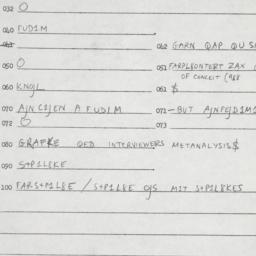 032 O
040 FUDIM
043
062 GARN QAP QU
050 O
051 FARPLEONTERT ZAX
OF CONCEIT (988
060 KNOJL
061 $
070 AJNCIJEN A FUDIM
071 —BUT
072 O
073
080 QED INTERVIEWERS METANALYSIS$
090 S+P1L8KE
100 FARS+P1L8E / S+P1L8E OJS MIT S+P1L8KES